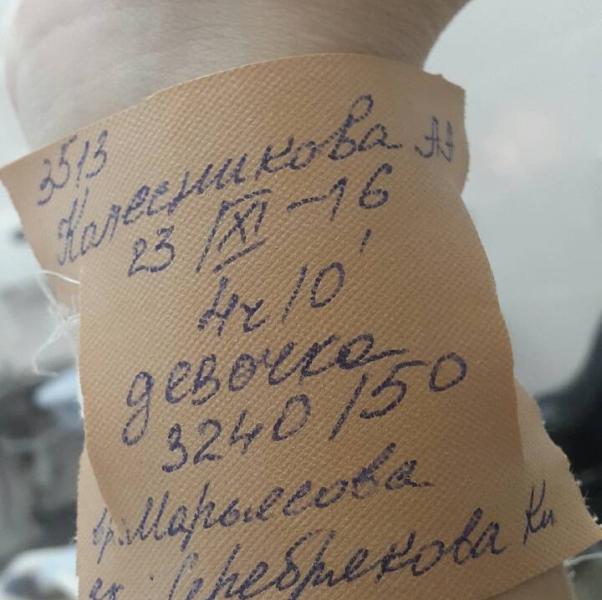 3513
Колесникова АЭ
23/XI-16
4ч10'
девочка
3240/50
вр. Марьесова
Серебрекова Кн